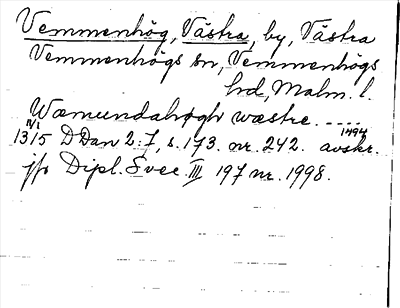 Vemmenhög, Västra, by, Västra
Vemmenhögs sn, Vemmenhögs
hd, Malm. l.
Wæmundahøgh wæstre .....
13 IV/I 15 D Dan 2:7, s. 173. nr. 242. avskr. 1494
jfr Dipl. Svec. III 197 nr. 1998.